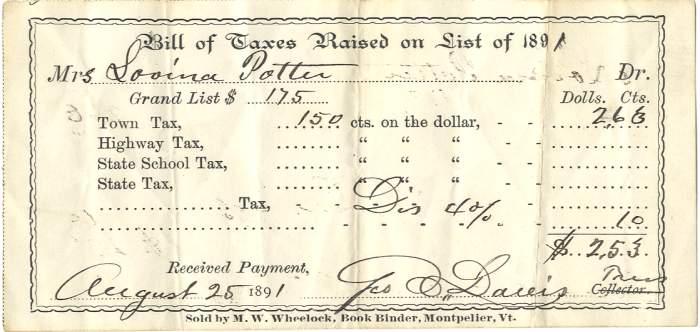 Bill of Taxes Raised on List of 1891
Mrs Lovina Potter Dr.
Grand List $ 175 Dolls. Cts.
Town Tax, 150 cts. on the dollar, - - 263
Highway Tax, " " " - -
State School Tax, " " " - -
State Tax, " " " - -
Tax, - Dis 4% - - 10
$ 253
Received Payment,
August 25 1891 Geo S. Davis Treas
Collector.
Sold by M. W. Wheelock, Book Binder, Montpelier, Vt.